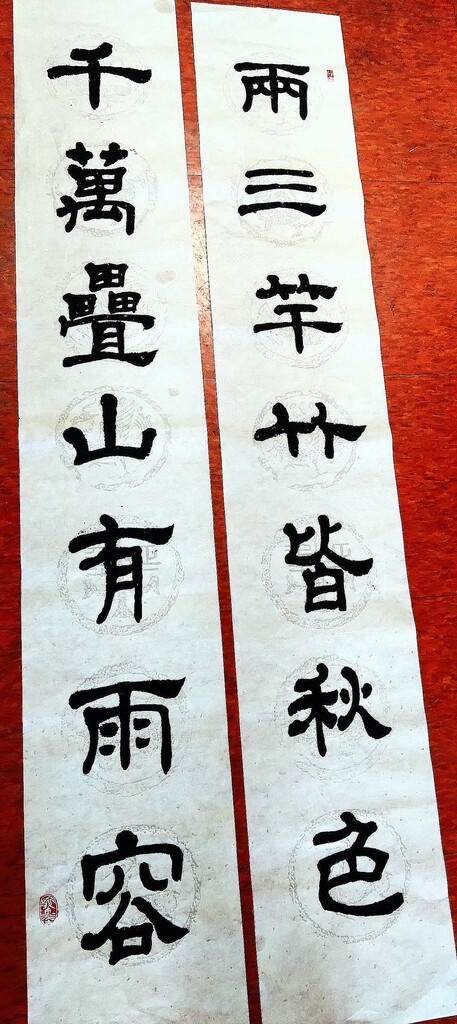 兩三竿竹皆秋色
千萬疊山有雨容